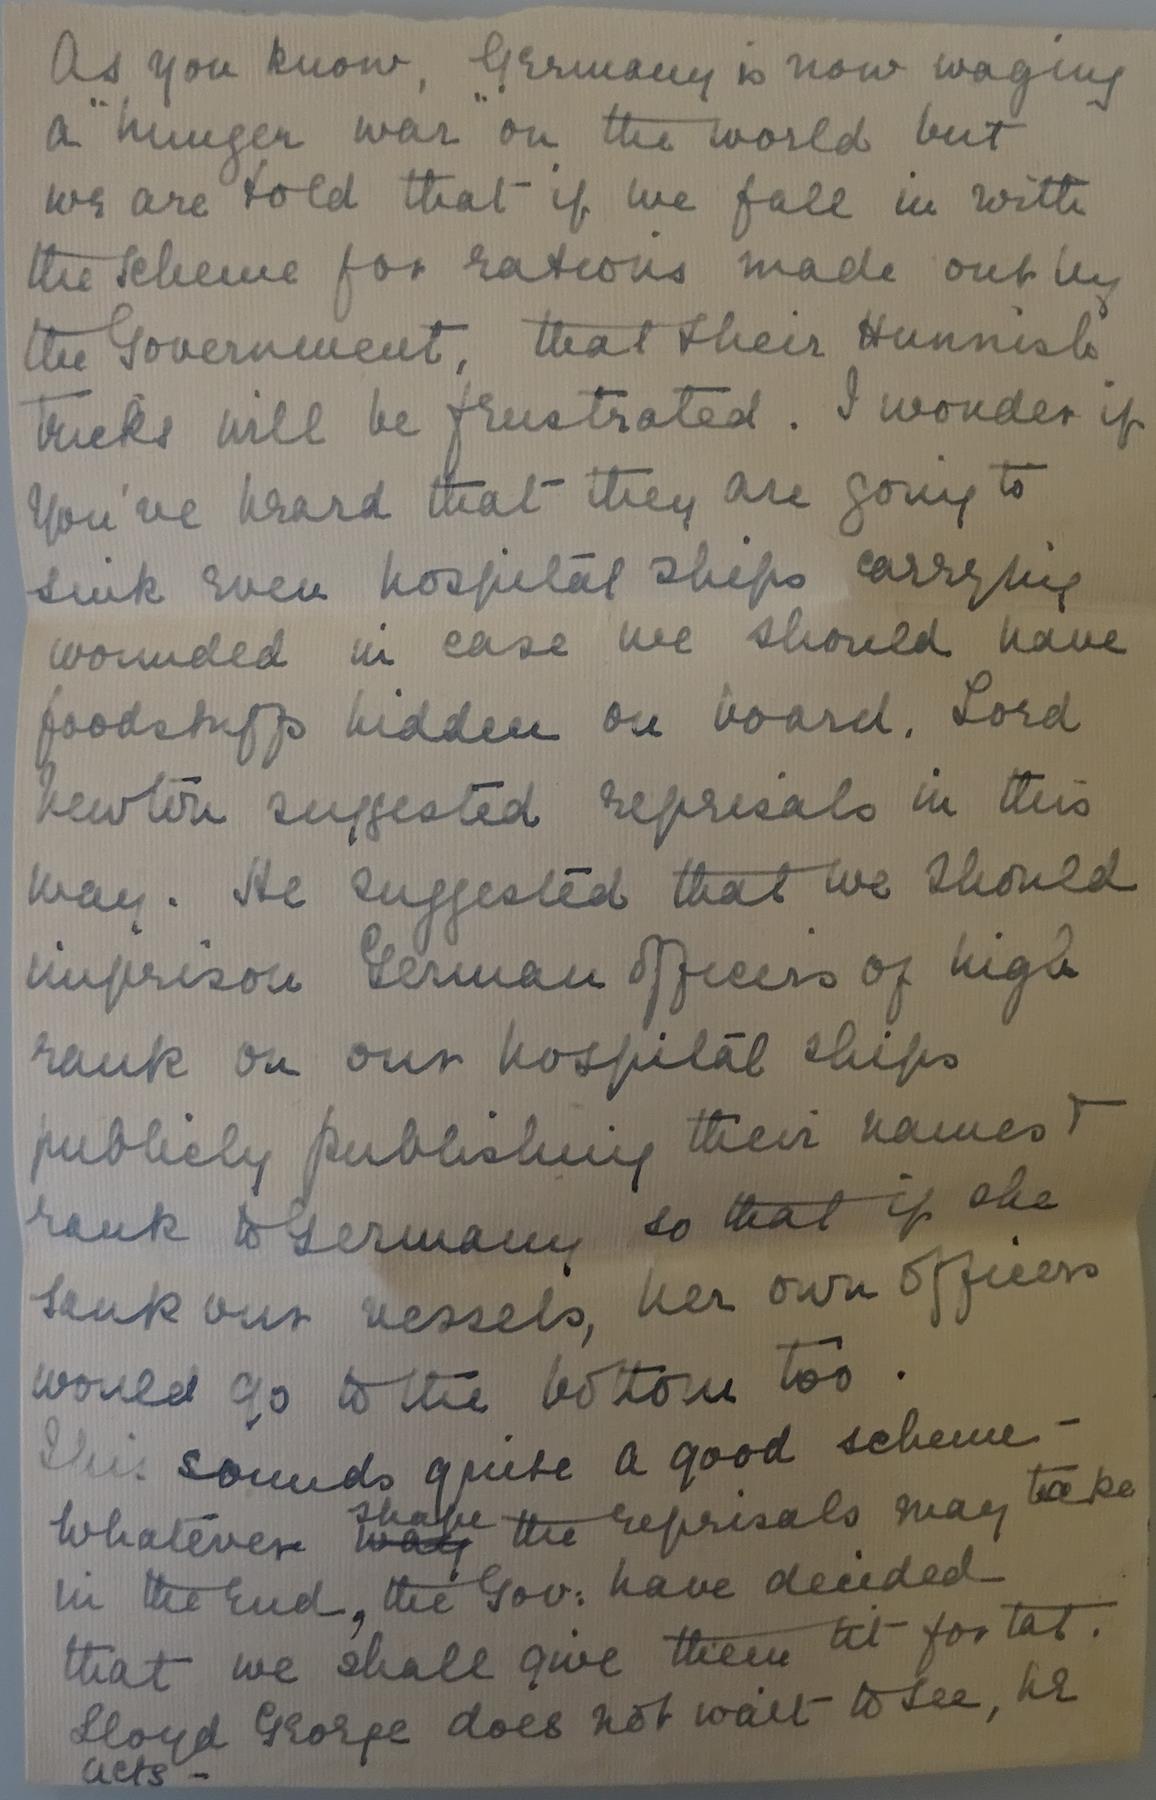 As you know, Germany is now waging
a "hunger war" on the world but
we are told that if we fall in with
the scheme for rations made out by
the Government, that their Hunnish
tricks will be frustrated. I wonder if
you've heard that they are going to
sink even hospital ships carrying
wounded in case we should have
foodstuffs hidden on board. Lord
Newton suggested reprisals in this
way. He suggested that we should
imprison German officers of high
rank on our hospital ships
publicly publishing their names &
rank to Germany so that if she
sank our vessels, her own officers
would go to the bottom too.
This sounds quite a good scheme -
Whatever way shape the reprisals may take
in the end, the Gov: have decided
that we shall give them tit for tat.
Lloyd George does not wait to see, he
acts -